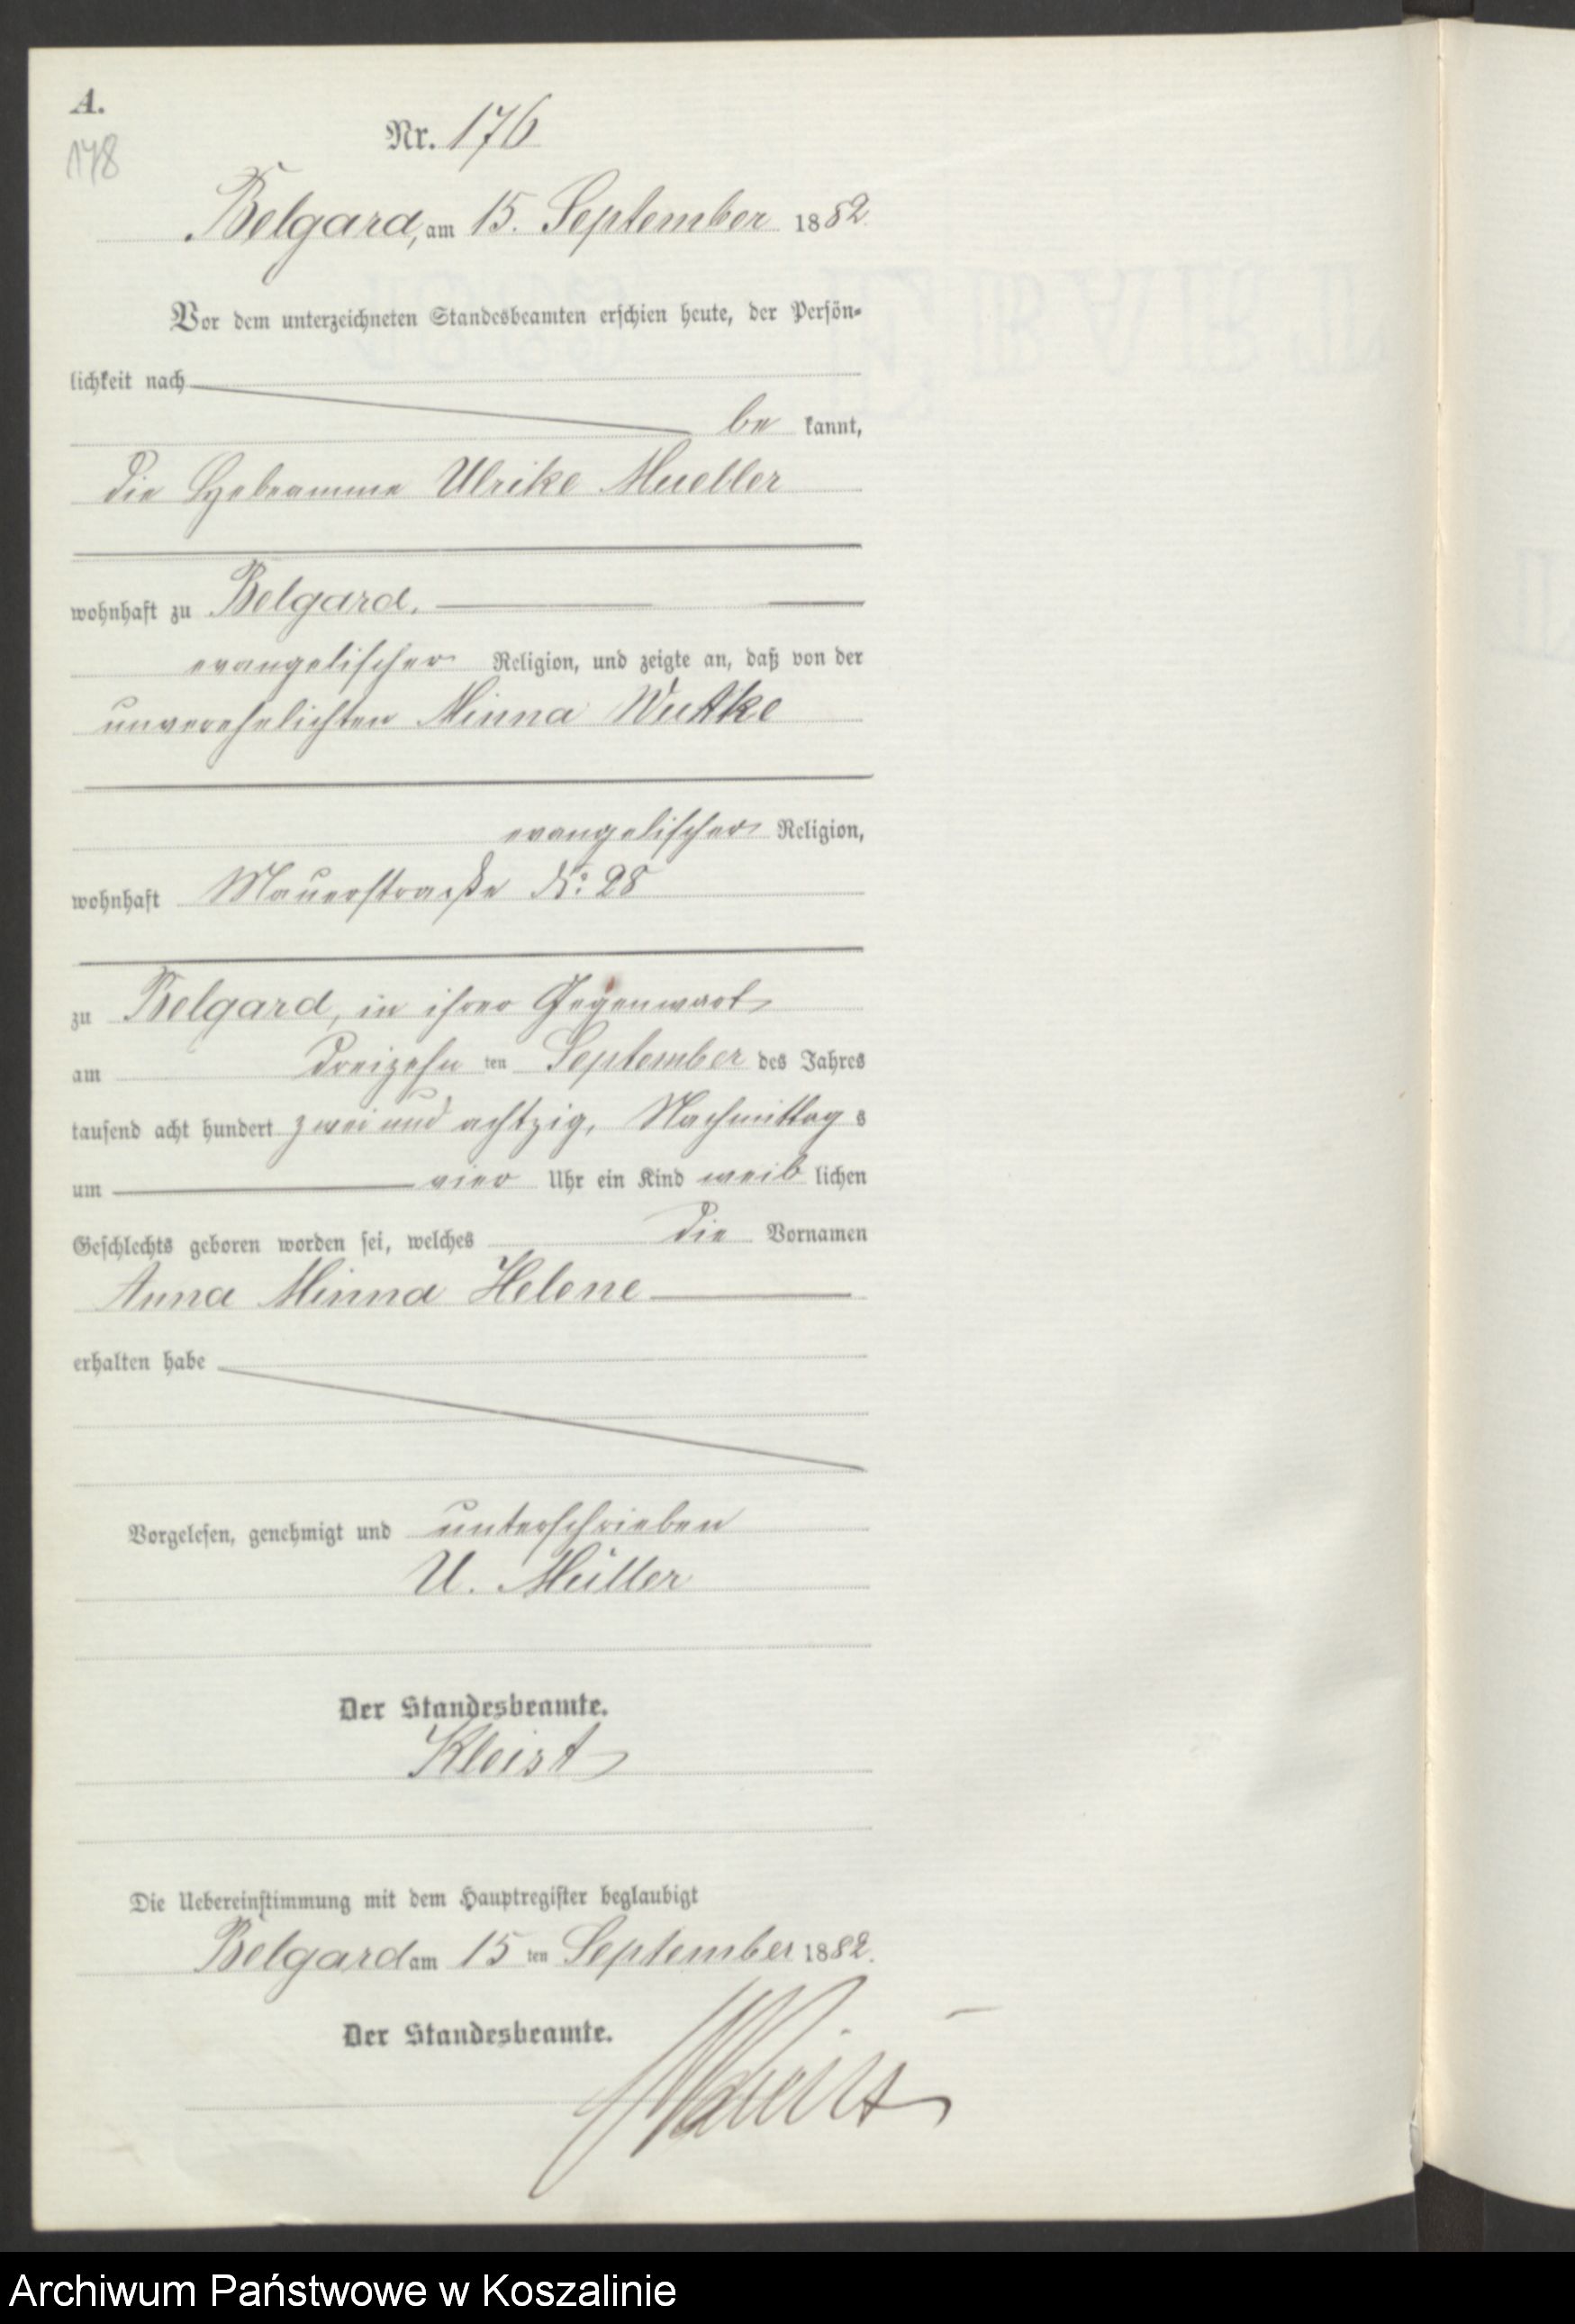 A.
178
Nr. 176
Belgard, am 15. September 1882
Vor dem unterzeichneten Standesbeamten erschien heute, der Persön-
lichkeit nach
be kannt,
die Hebeamme Ulrike Mueller
wohnhaft zu Belgard.
evangelischer Religion, und zeigte an, daß von der
unverehelichten Minna Wutke
evangelischer Religion,
wohnhaft Mauerstraße No: 28
zu Belgard, in ihrer Gegenwart
am dreizehn ten September des Jahres
tausend acht hundert zwei und achtzig, Nachmittag s
um vier Uhr ein Kind weib lichen
Geschlechts geboren worden sei, welches die Vornamen
Anna Minna Helene
erhalten habe
Vorgelesen, genehmigt und unterschrieben
U. Müller
Der Standesbeamte.
Kleist
Die Uebereinstimmung mit dem Hauptregister beglaubigt
Belgard am 15 ten September 1882.
Der Standesbeamte.
Kleist
Archiwum Państwowe w Koszalinie